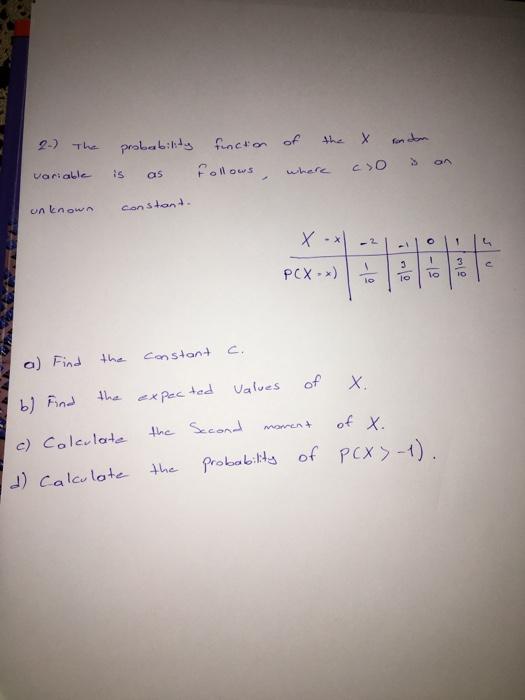 2-) The probability function of the X random
variable is as follows, where c>0 is an
unknown constant.
X = x | -2 | -1 | 0 | 1 | 4
P(X=x) | 1/10 | 3/10 | 1/10 | 3/10 | c
a) Find the constant c.
b) Find the expected values of X.
c) Calculate the Second moment of X.
d) Calculate the probability of P(X > -1).